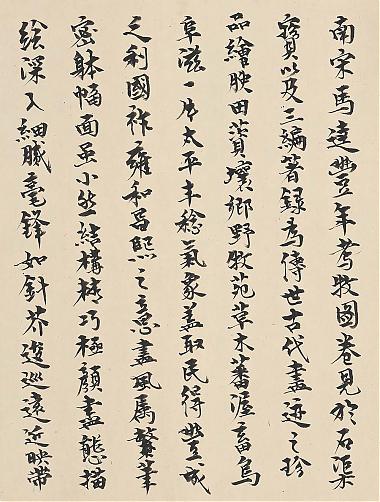 南宋馬逵豐年蕃牧圖卷見於石渠
寳笈三編著錄為傳世古代畫迹之珍
品繪腴田賁壤鄉野牧苑草木蕃渥畜鳥
滋一片太平丰稔氣象盖取民得豐
之利國祚雍和昌熙之意畫風属繁筆
密躰幅面虽小然結構精巧極顏盡態描
繪深入細膩毫鋒如針芥逡巡遠近映帶